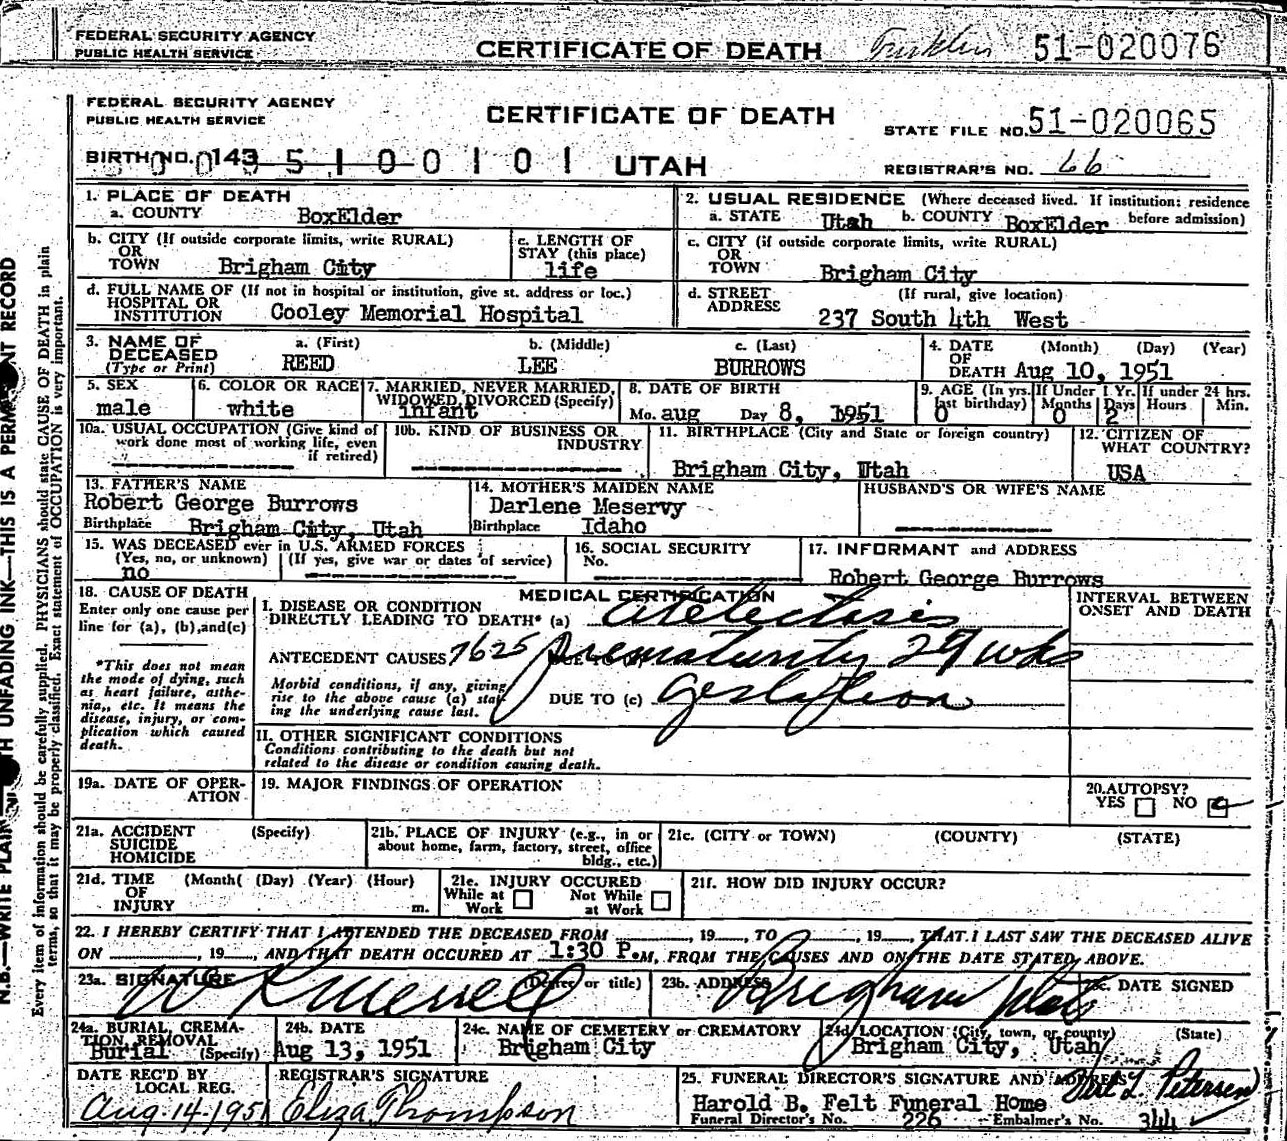 FEDERAL SECURITY AGENCY
PUBLIC HEALTH SERVICE
CERTIFICATE OF DEATH
51-020076
FEDERAL SECURITY AGENCY
PUBLIC HEALTH SERVICE
CERTIFICATE OF DEATH
STATE FILE NO. 51-020065
BIRTH NO. 0 0 143 5 1 0 0 1 0 1 UTAH
REGISTRAR'S NO. 66
1. PLACE OF DEATH
a. COUNTY BoxElder
2. USUAL RESIDENCE (Where deceased lived. If institution: residence before admission)
a. STATE Utah b. COUNTY BoxElder
b. CITY (If outside corporate limits, write RURAL)
OR
TOWN Brigham City
c. LENGTH OF
STAY (this place)
life
c. CITY (if outside corporate limits, write RURAL)
OR
TOWN Brigham City
d. FULL NAME OF (If not in hospital or institution, give st. address or loc.)
HOSPITAL OR
INSTITUTION Cooley Memorial Hospital
d. STREET (If rural, give location)
ADDRESS
237 South 4th West
3. NAME OF
DECEASED
(Type or Print)
a. (First) b. (Middle) c. (Last)
REED LEE BURROWS
4. DATE (Month) (Day) (Year)
OF
DEATH Aug 10, 1951
5. SEX
male
6. COLOR OR RACE
white
7. MARRIED, NEVER MARRIED,
WIDOWED, DIVORCED (Specify)
infant
8. DATE OF BIRTH
Mo. aug Day 8, 1951
9. AGE (In yrs. last birthday) 0
If Under 1 Yr. Months 0 Days 2
If under 24 hrs. Hours Min.
10a. USUAL OCCUPATION (Give kind of
work done most of working life, even
if retired)
10b. KIND OF BUSINESS OR
INDUSTRY
11. BIRTHPLACE (City and State or foreign country)
Brigham City, Utah
12. CITIZEN OF
WHAT COUNTRY?
USA
13. FATHER'S NAME
Robert George Burrows
Birthplace Brigham City, Utah
14. MOTHER'S MAIDEN NAME
Darlene Meservy
Birthplace Idaho
HUSBAND'S OR WIFE'S NAME
15. WAS DECEASED ever in U.S. ARMED FORCES
(Yes, no, or unknown) (If yes, give war or dates of service)
no
16. SOCIAL SECURITY
No.
17. INFORMANT and ADDRESS
Robert George Burrows
18. CAUSE OF DEATH
Enter only one cause per
line for (a), (b), and (c)
*This does not mean
the mode of dying, such
as heart failure, asthe-
nia,, etc. It means the
disease, injury, or com-
plication which caused
death.
MEDICAL CERTIFICATION
INTERVAL BETWEEN
ONSET AND DEATH
I. DISEASE OR CONDITION
DIRECTLY LEADING TO DEATH* (a) atelectasis
ANTECEDENT CAUSES 7625 DUE TO (b) prematurity 29 wks
Morbid conditions, if any, giving
rise to the above cause (a) stat-
ing the underlying cause last.
DUE TO (c) gestation
II. OTHER SIGNIFICANT CONDITIONS
Conditions contributing to the death but not
related to the disease or condition causing death.
19a. DATE OF OPER-
ATION
19. MAJOR FINDINGS OF OPERATION
20. AUTOPSY?
YES NO
21a. ACCIDENT (Specify)
SUICIDE
HOMICIDE
21b. PLACE OF INJURY (e.g., in or
about home, farm, factory, street, office
bldg., etc.)
21c. (CITY or TOWN) (COUNTY) (STATE)
21d. TIME (Month( (Day) (Year) (Hour)
OF
INJURY m.
21e. INJURY OCCURED
While at Work Not While at Work
21f. HOW DID INJURY OCCUR?
22. I HEREBY CERTIFY THAT I ATTENDED THE DECEASED FROM , 19 , TO , 19 , THAT I LAST SAW THE DECEASED ALIVE
ON , 19 , AND THAT DEATH OCCURED AT 1:30 P.M, FROM THE CAUSES AND ON THE DATE STATED ABOVE.
23a. SIGNATURE (Degree or title)
23b. ADDRESS Brigham Utah
23c. DATE SIGNED
24a. BURIAL, CREMA-
TION, REMOVAL
Burial (Specify)
24b. DATE
Aug 13, 1951
24c. NAME OF CEMETERY or CREMATORY
Brigham City
24d LOCATION (City, town, or county) (State)
Brigham City, Utah
DATE REC'D BY
LOCAL REG.
Aug-14-1951
REGISTRAR'S SIGNATURE
Eliza Thompson
25. FUNERAL DIRECTOR'S SIGNATURE AND ADDRESS
L. Petersen
Harold B. Felt Funeral Home
Funeral Director's No. 226 Embalmer's No. 344
N.B.—WRITE PLAINLY WITH UNFADING INK—THIS IS A PERMANENT RECORD
Every item of information should be carefully supplied. PHYSICIANS should state CAUSE OF DEATH in plain
terms, so that it may be properly classified. Exact statement of OCCUPATION is very important.